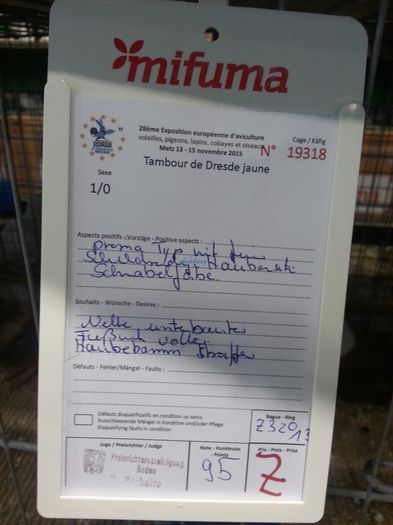 mifuma
28ème Exposition européenne d'aviculture
volailles, pigeons, lapins, cobayes et oiseaux
Metz 13 - 15 novembre 2015
N°
Cage / Käfig
19318
Tambour de Dresde jaune
Sexe
1/0
Aspects positifs - Vorzüge - Positive aspects :
prima Typ mit
Schnabelfarbe.
Souhaits - Wünsche - Desires :
Nelke
voller
Défauts - Fehler/Mängel - Faults :
Défauts disqualificatifs en condition ou soins
Ausschliessende Mängel in Kondition und/oder Pflege
Disqualifying faults in condition
Bague - Ring
Z320 13
Juge / Preisrichter / Judge
Preisrichtervereinigung
Baden
Note - Punktnote
- Points
95
Prix - Preis - Prize
Z